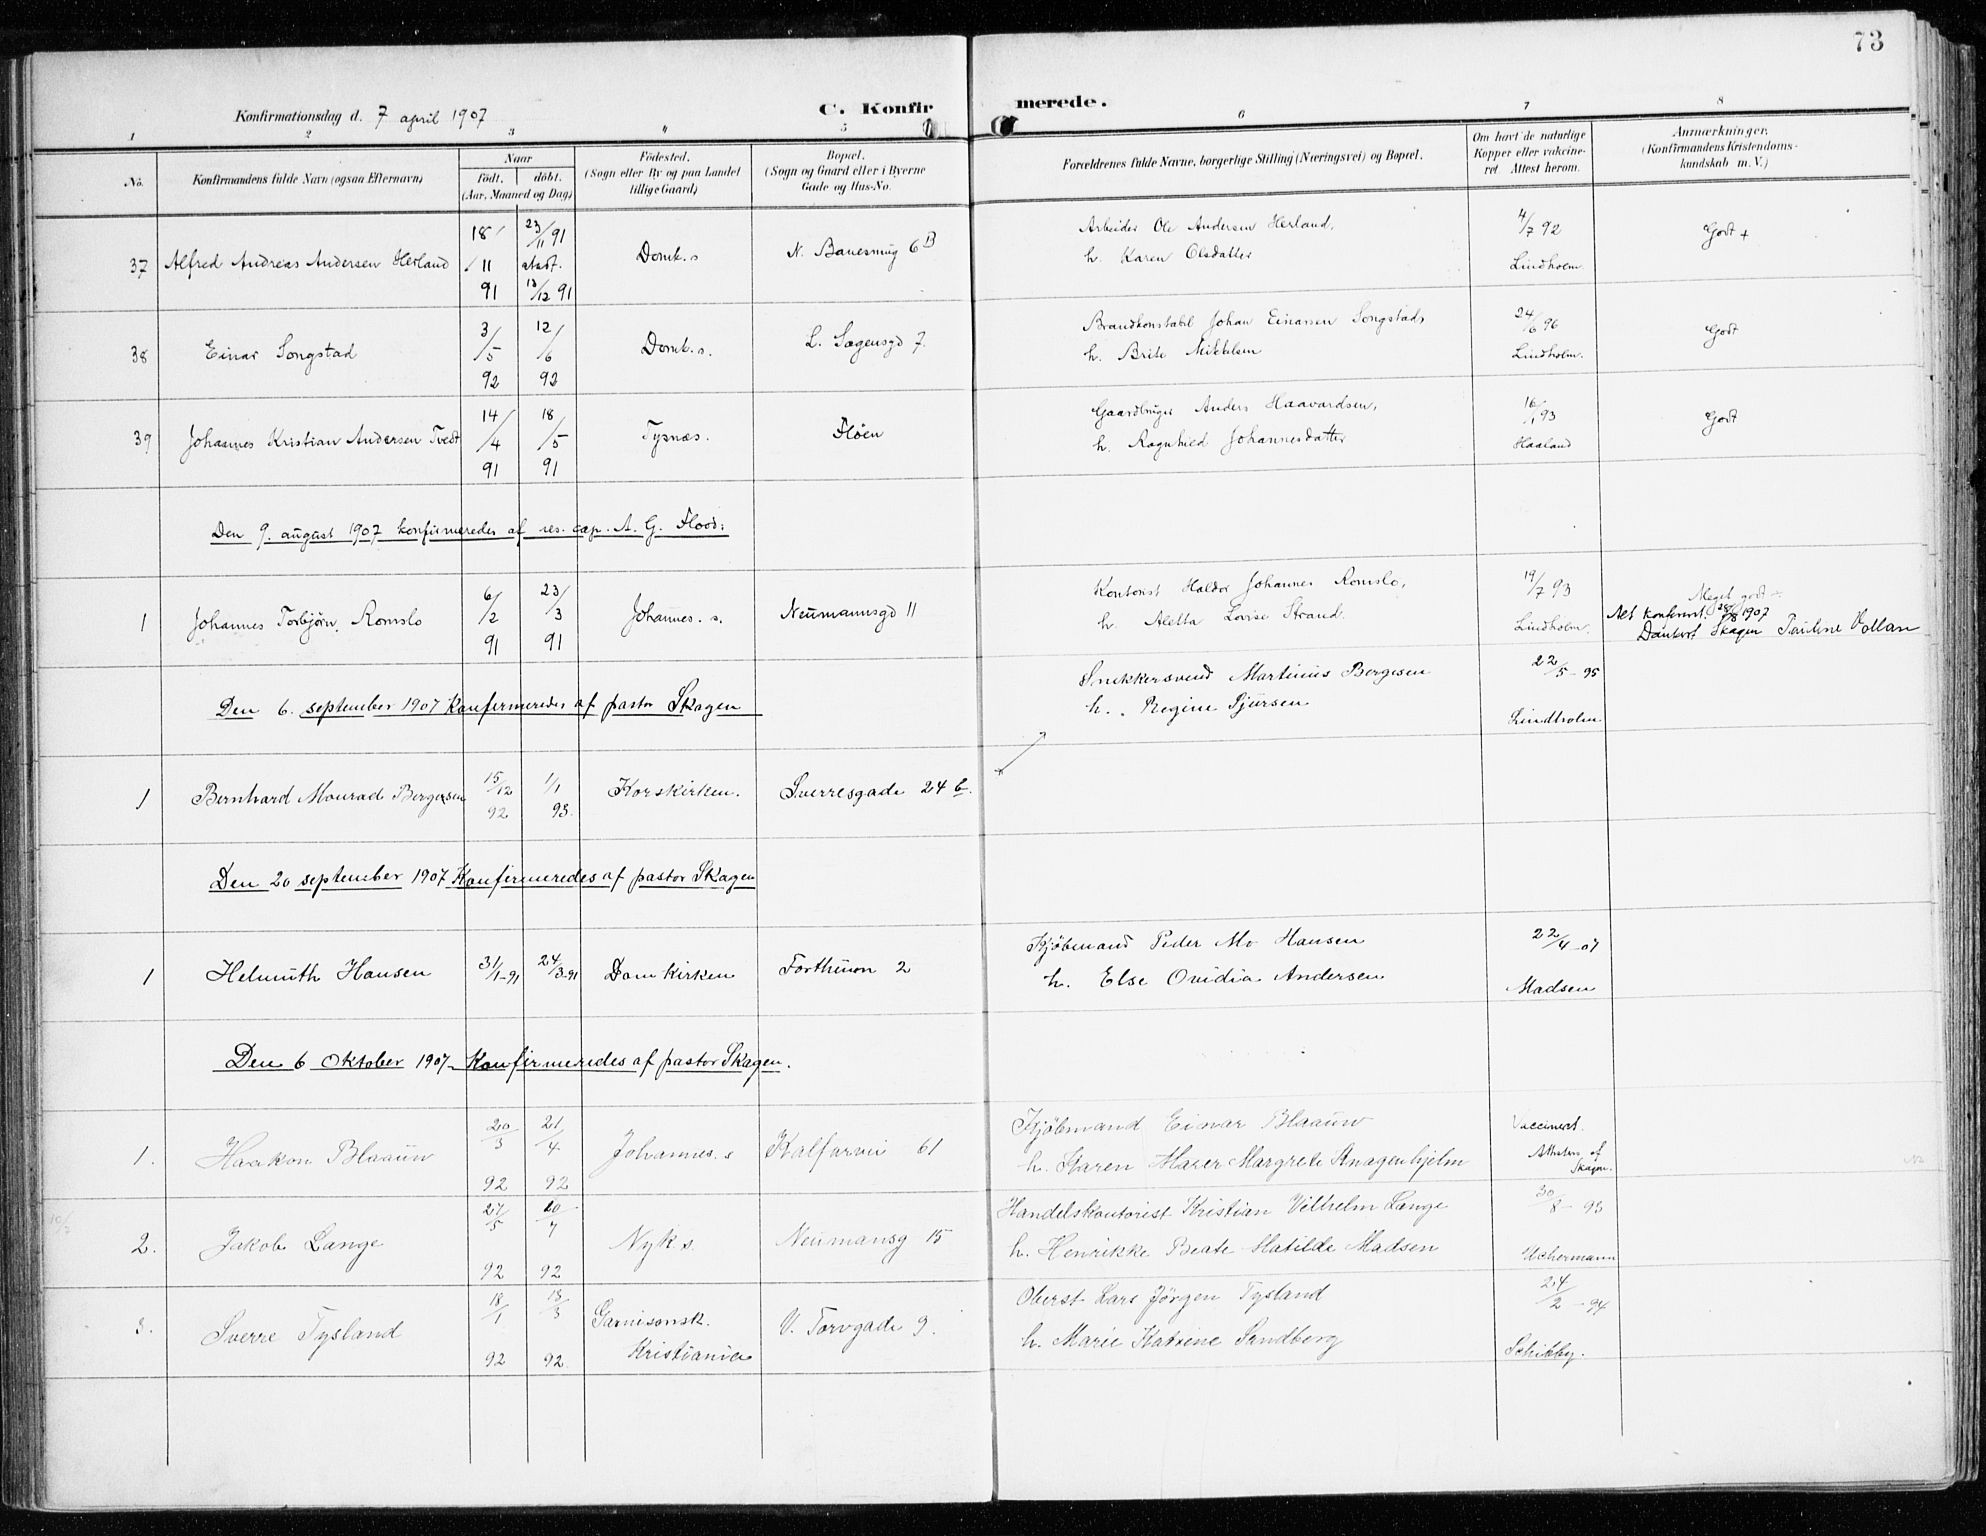 73
Konfirmationsdag d. 7 april 1907
C. Konfirmerede.
1 2 3 " 5 6 7 8
No. Konfirmandens fulde Navn (ogsaa Efternavn)
Naar
födt. döbt.
(Aar, Maaned og Dag)
Födested.
(Sogn eller By og paa Landet
tillige Gaard)
Bopæl.
(Sogn og Gaard eller i Byerne
Gade og Hus-No.
Forældrenes fulde Navne, borgerlige Stilling (Næringsvei) og Bopæl.
Om havt de naturlige
Kopper eller vakcine-
ret. Attest herom.
Anmærkninger.
(Konfirmandens Kristendoms-
kundskab m. V.)
37 Alfred Andreas Andersen Herland
18/11 91
23/11 91
stadf.
13/12 91
Domk. s
6 B
Arbeider Ole Andersen Herland,
h. Karen Olsdatter
4/7 92
Lindholm.
Godt +
38 Einar Songstad
3/5 92
12/6 92
Domk. s.
L. Sægensgd 7.
Brandkonstabel Johan Einarsen Songstad,
h. Brite Mikkelsen
24/6 96
Lindholm.
Godt
39 Johannes Kristian Andersen Tvedt
14/4 91
18/5 91
Tysnæs.
Flöen
Gaardbruger Anders Haavardsen,
h. Ragnhild Johannesdatter
16/1 93
Haaland
Godt
Den 9. august 1907 konfirmeredes af res. cap. A. G. Flood:
1 Johannes Torbjörn Romslo
6/2 91
23/3 91
Johannes. s.
Neumannsgd 11
Kontorist Haldor Johannes Romslo,
h. Aletta Lovise Strand.
19/7 93
Lindholm.
Meget godt
Alt konferert 28/8 1907
Dankert Skagen Pauline Vollan
Den 6. september 1907 Konfirmeredes af pastor Skagen
Snekkersvend Martinus Bergesen
h. Regine Sjursen
22/5 - 95
Lindholm
1 Bernhard Monrad Bergersen
15/12 92
1/1 93.
Korskirken.
Sverresgade 24 b.
Den 20 september 1907 Konfirmeredes af pastor Skagen
1 Helmuth Hansen
31/1-91
24/3-91
Domkirken
Forthunon 2
Kjöbmand Peder Mo Hansen
h. Else Ovidia Andersen
22/4-07
Madsen
Den 6 Oktober 1907 Konfirmeredes af pastor Skagen.
1. Haakon Blaauw
20/3 92
21/4 92
Johannes. s
Kalfarvei 61
Kjöbmand Einar Blaauw
h. Karen Maren Margrete Knagenhjelm
Vaccinert.
Attesten af
Skagen.
2. Jakob Lange
27/5 92
20/7 92
Nyk s.
Neumansg 15
Handelskontorist Kristian Vilhelm Lange
h. Henrikke Beate Matilde Madsen
30/8 - 93
Uchermann
3. Sverre Tysland
18/1 92
13/3 92.
Garnisonsk.
Kristiania
V. Torvgade 9.
Oberst Lars Jörgen Tysland
h. Marie Katrine Sandberg
24/2 - 94
Schikby.